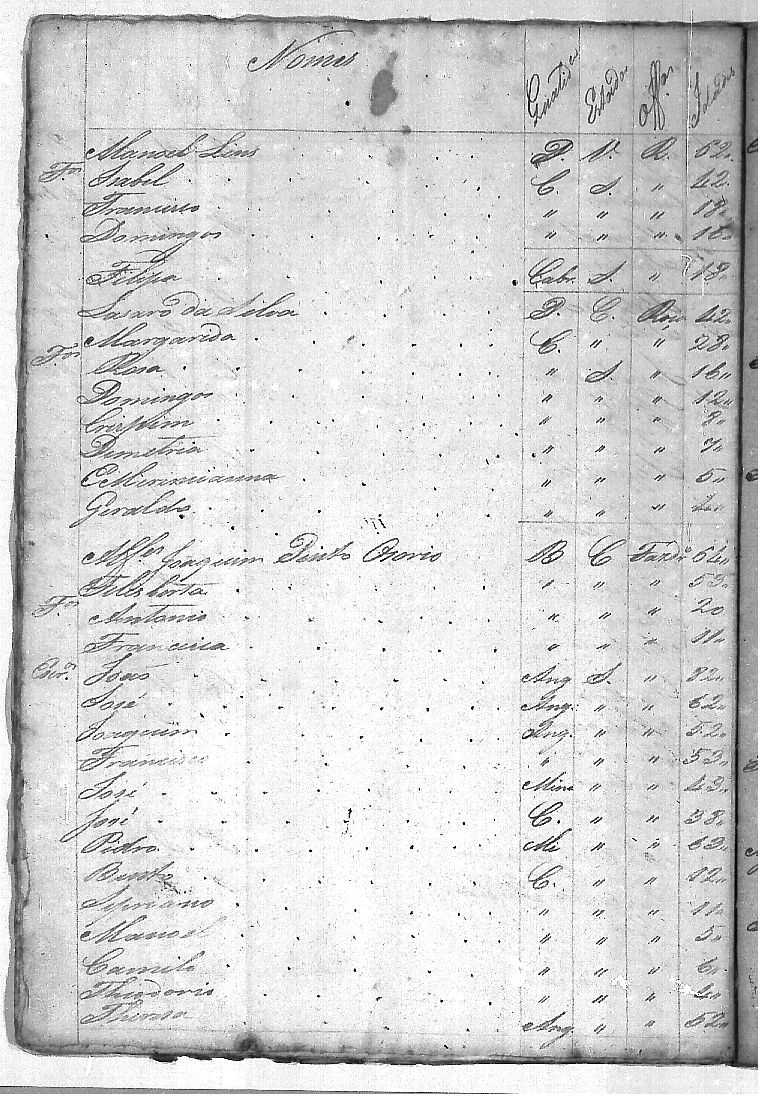 Nomes Qualid.es Estados Off.os Idades
Manoel Lins P. V. R. 62
F.os Isabel C. S. " 42
Francisco " " " 18
Domingos " " " 16
Filipa Cabr. S. " 13
Lasaro da Silva P. C. Roc 42
Margarida C. " " 28
F.os Rosa " S. " 16
Domingos " " " 12
Crispim " " " 8
Dimetria " " " 7
Emerenciana " " " 5
Geraldo " " "
Alf.es Joaquim Pinto Osorio B C Fazd.r 64
Felisberta " " " 53
F.os Antonio " " " 20
Francisca " " " 11
Escr.os João Ang S. " 32
José Ang. " " 62
Joaquim Ang. " " 52
Francisco " " " 53
José Mina " " 43
José C. " " 38
Pedro Mi " " 63
Bento C. " " 12
Sepriano " " " 11
Manoel " " " 5
Camilo " " " 6
Theodorio " " " 4
Theresa Ang " " 52